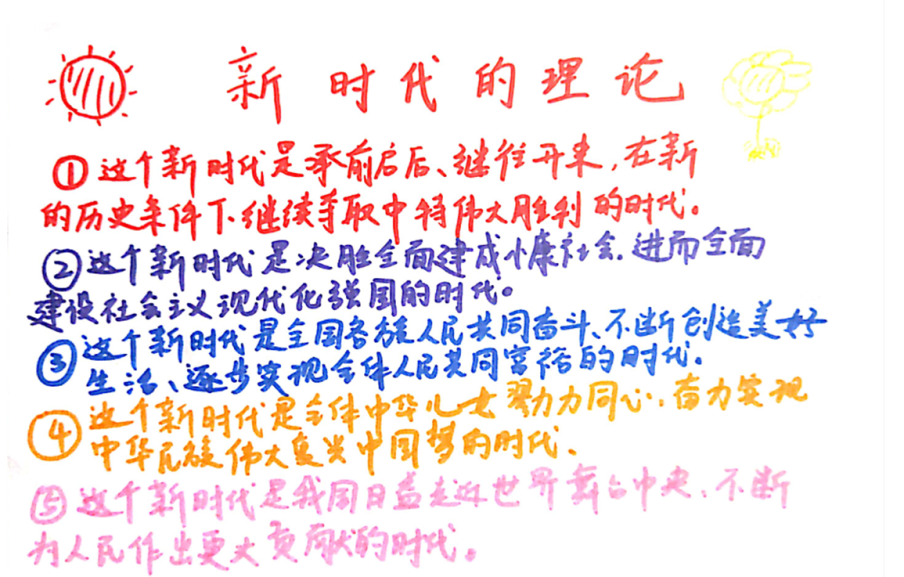 新时代的理论
①这个新时代是承前启后、继往开来,在新
的历史条件下继续夺取中特伟大胜利的时代。
②这个新时代是决胜全面建成小康社会.进而全面
建设社会主义现代化强国的时代。
③这个新时代是全国各族人民共同奋斗、不断创造美好
生活、逐步实现全体人民共同富裕的时代.
④这个新时代是全体中华儿女勠力同心.奋力实现
中华民族伟大复兴中国梦的时代.
⑤这个新时代是我国日益走近世界舞台中央、不断
为人民作出更大贡献的时代。